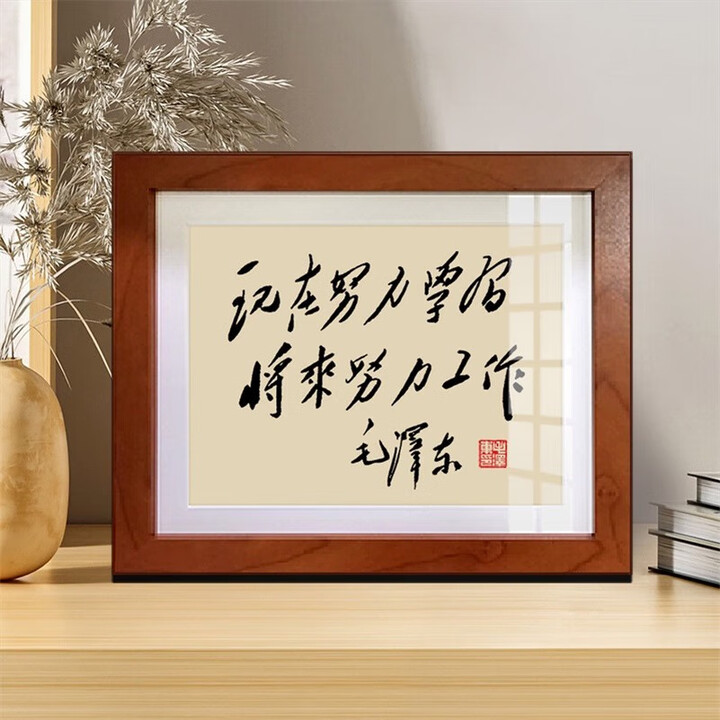 现在努力學習
將來努力工作
毛澤东